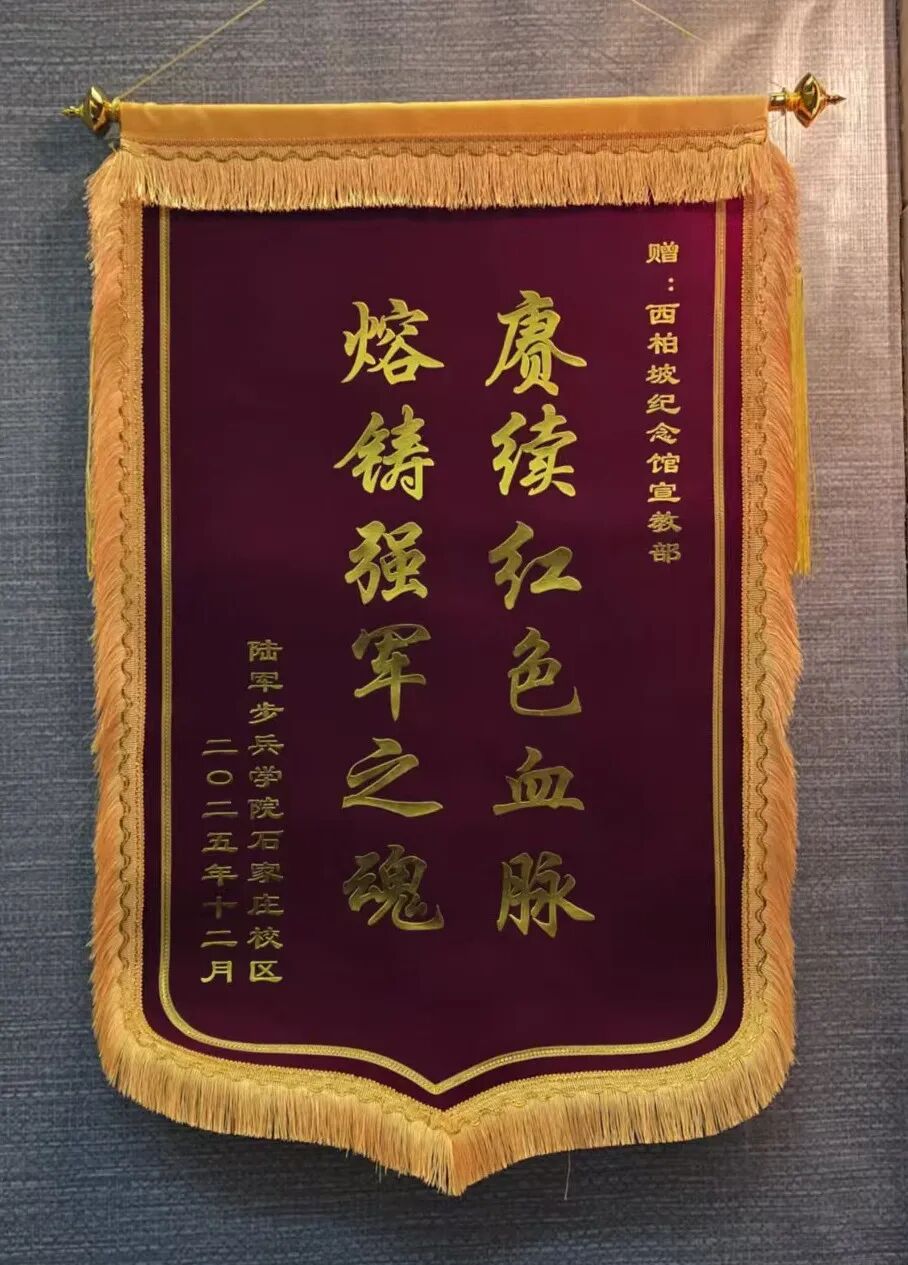 赠：西柏坡纪念馆宣教部
赓续红色血脉
熔铸强军之魂
陆军步兵学院石家庄校区
二〇二五年十二月